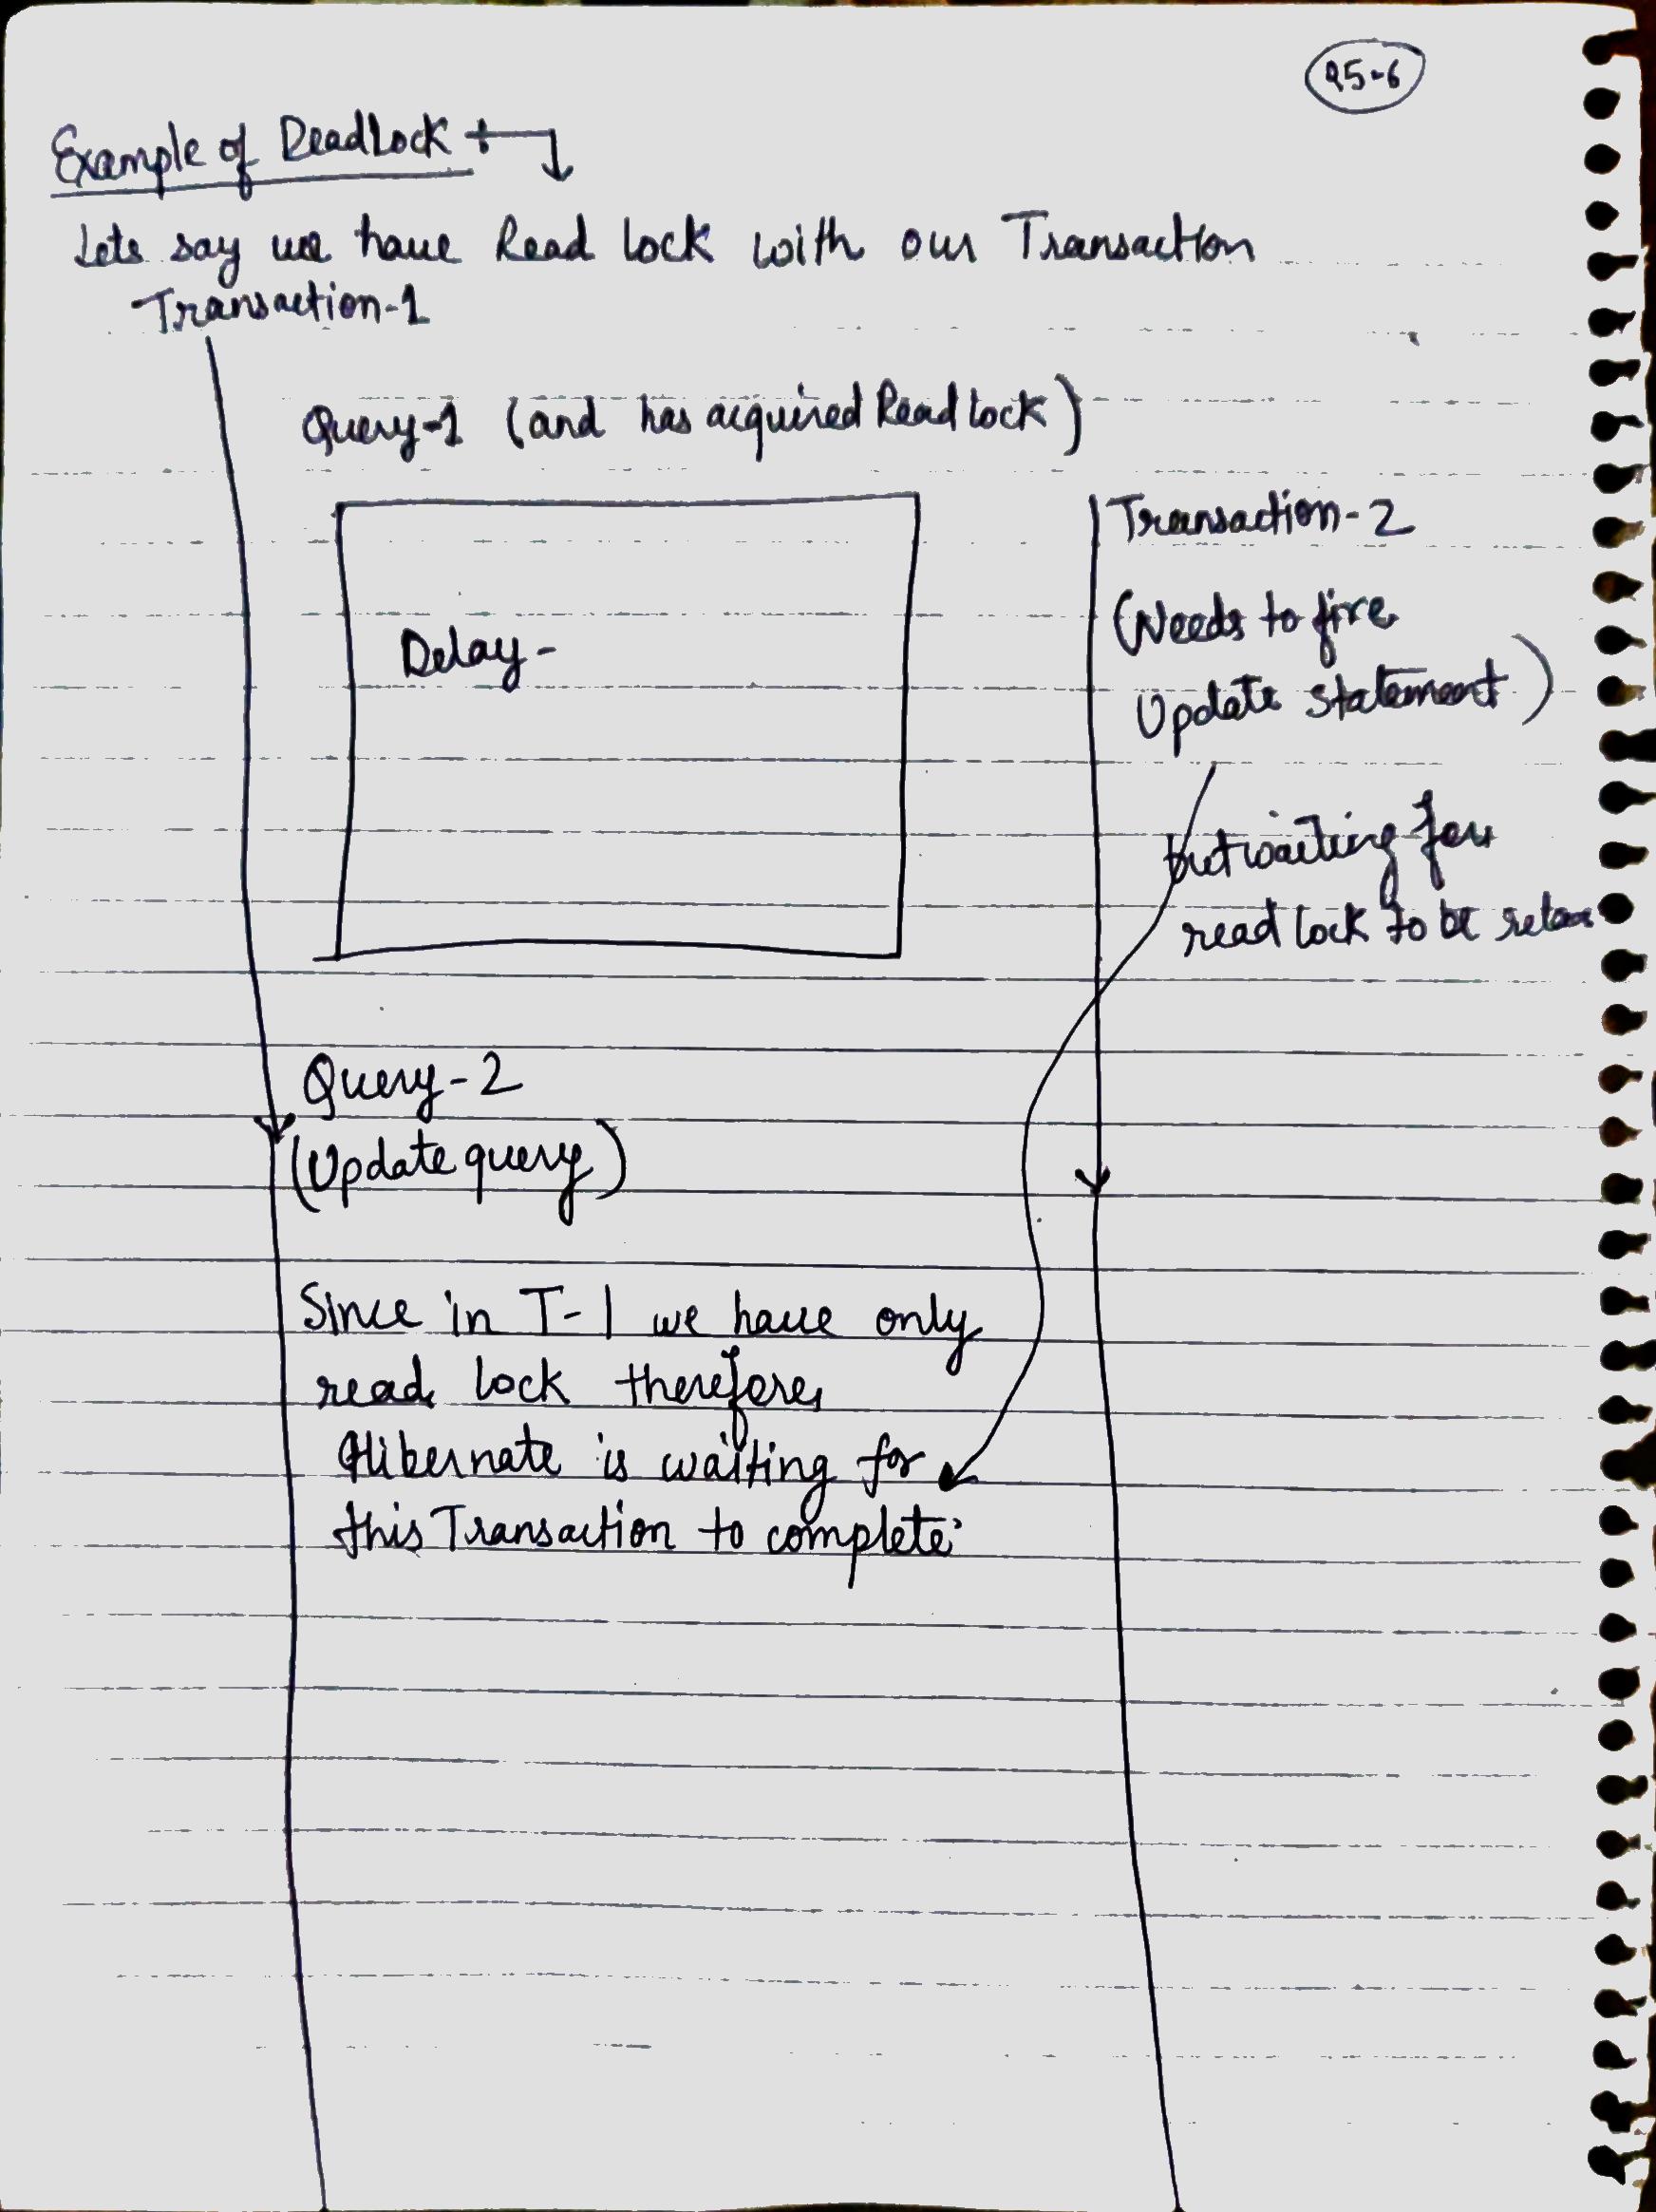 25-6
Example of DeadLock
Lets say we have Read Lock with our Transaction
Transaction-1
Query-1 (and has acquired Read Lock)
Transaction-2
(Needs to fire
Update statement)
Delay-
but waiting for
read lock to be
Query-2
(Update query)
Since in T-1 we have only
read lock therefore
Hibernate is waiting for
this Transaction to complete